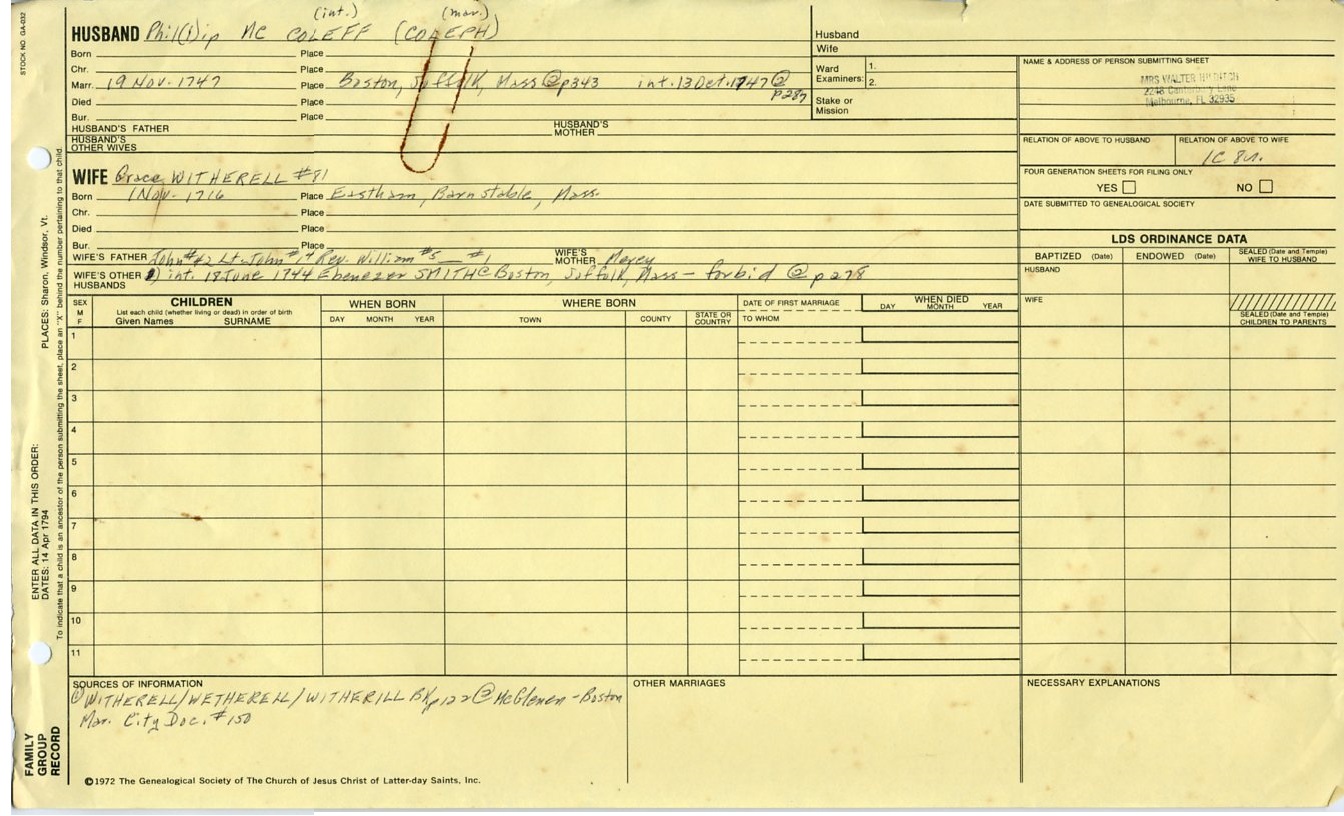 STOCK NO. GA-032
(int.) (mar.)
HUSBAND Phil(l)ip Mc COLEFF (COLEPH)
Born Place
Chr. Place
Marr. 19 Nov. 1747 Place Boston, Suffolk, Mass @ p343 int. 13 Oct. 1747 @ p287
Died Place
Bur. Place
HUSBAND'S FATHER HUSBAND'S MOTHER
HUSBAND'S OTHER WIVES
Husband
Wife
Ward Examiners: 1.
2.
Stake or Mission
NAME & ADDRESS OF PERSON SUBMITTING SHEET
MRS WALTER
2248 Canterbury Lane
Melbourne, FL 32935
RELATION OF ABOVE TO HUSBAND RELATION OF ABOVE TO WIFE
1C 8r.
FOUR GENERATION SHEETS FOR FILING ONLY
YES NO
DATE SUBMITTED TO GENEALOGICAL SOCIETY
WIFE Grace WITHERELL #81
Born 1 Nov. 1716 Place Eastham, Barnstable, Mass.
Chr. Place
Died Place
Bur. Place
WIFE'S FATHER John #42 Lt. John #14 Rev. William #5 #1 WIFE'S MOTHER Mercy
WIFE'S OTHER HUSBANDS 1) int. 18 June 1744 Ebenezer SMITH @ Boston, Suffolk, Mass - forbid @ p278
LDS ORDINANCE DATA
BAPTIZED (Date) ENDOWED (Date) SEALED (Date and Temple) WIFE TO HUSBAND
HUSBAND
WIFE
SEALED (Date and Temple) CHILDREN TO PARENTS
SEX M F
CHILDREN
List each child (whether living or dead) in order of birth
Given Names SURNAME
WHEN BORN
DAY MONTH YEAR
WHERE BORN
TOWN COUNTY STATE OR COUNTRY
DATE OF FIRST MARRIAGE
TO WHOM
WHEN DIED
DAY MONTH YEAR
1
2
3
4
5
6
7
8
9
10
11
SOURCES OF INFORMATION
① WITHERELL/WETHERELL/WITHERILL BK, p122 @ McGlenen - Boston
Mar. City Doc. #150
OTHER MARRIAGES
NECESSARY EXPLANATIONS
©1972 The Genealogical Society of The Church of Jesus Christ of Latter-day Saints, Inc.
FAMILY GROUP RECORD
ENTER ALL DATA IN THIS ORDER:
DATES: 14 Apr 1794 PLACES: Sharon, Windsor, Vt.
To indicate that a child is an ancestor of the person submitting the sheet, place an "X" behind the number pertaining to that child.